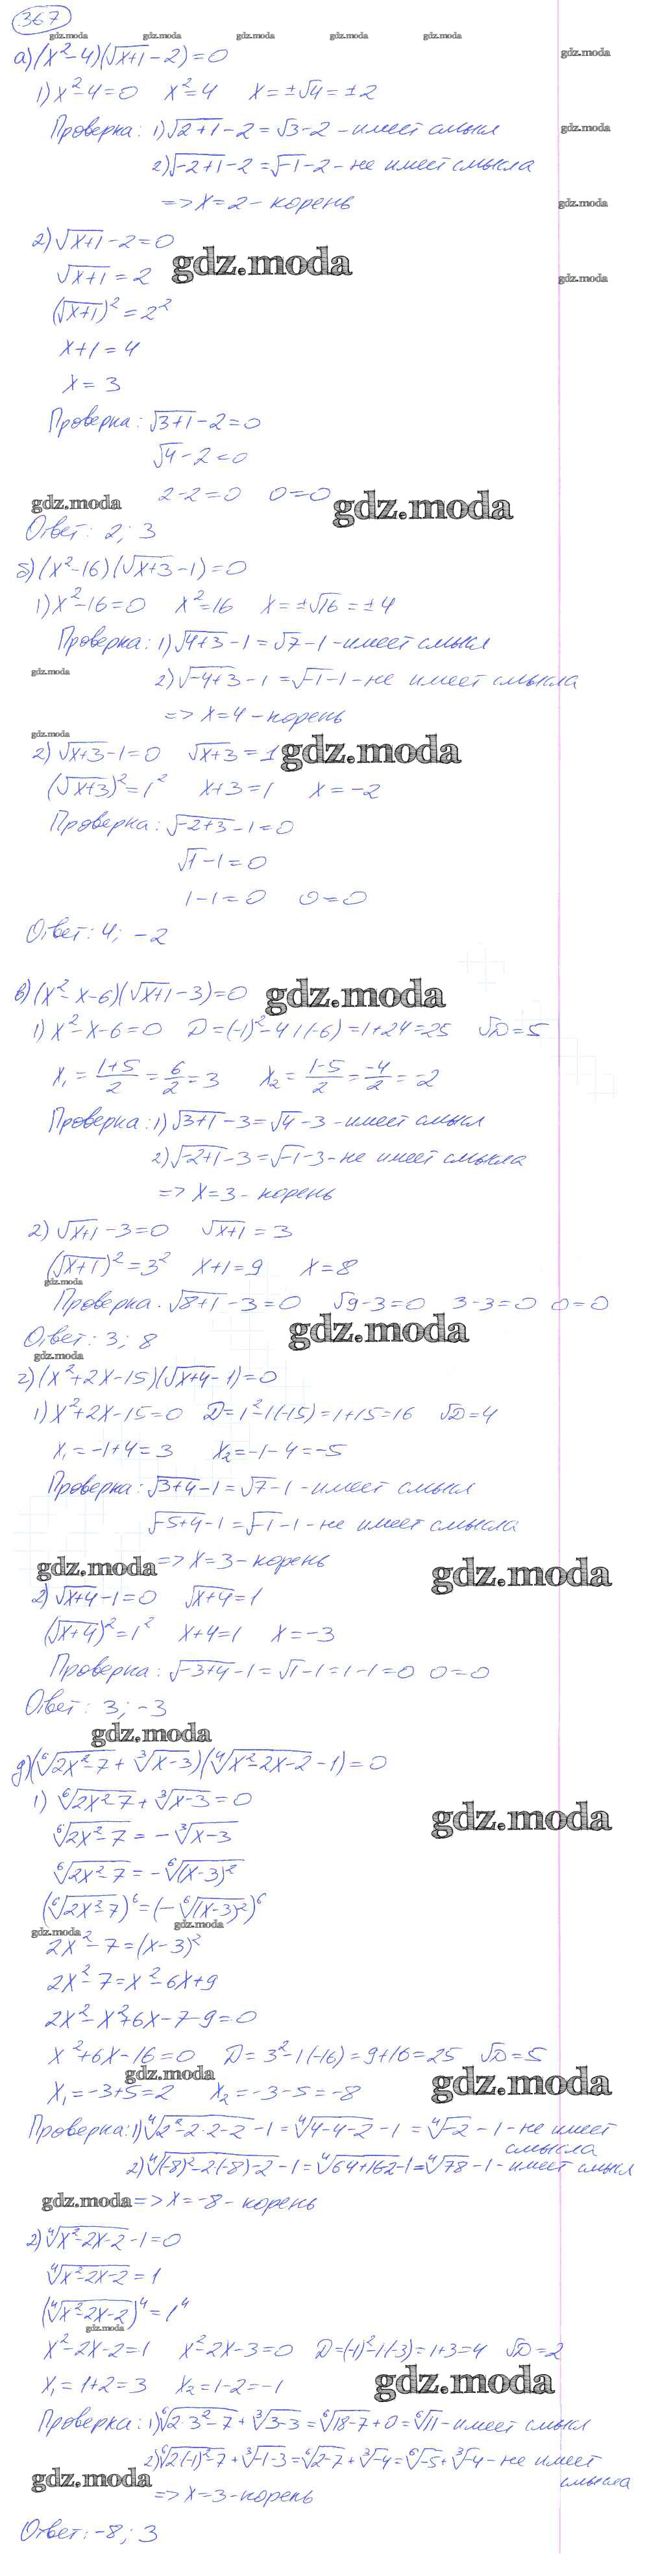 367
gdz.moda gdz.moda gdz.moda gdz.moda gdz.moda
а) (x²-4)(√(x+1)-2)=0
gdz.moda
1) x²-4=0 x²=4 x=±√4=±2
Проверка: 1) √(2+1)-2=√3-2 - имеет смысл
gdz.moda
2) √(-2+1)-2=√-1-2 - не имеет смысла
=> x=2 - корень
gdz.moda
2) √(x+1)-2=0
gdz.moda
√(x+1)=2
gdz.moda
(√(x+1))²=2²
x+1=4
x=3
Проверка: √(3+1)-2=0
√4-2=0
gdz.moda 2-2=0 0=0 gdz.moda
Ответ: 2; 3
б) (x²-16)(√(x+3)-1)=0
1) x²-16=0 x²=16 x=±√16=±4
Проверка: 1) √(4+3)-1=√7-1 - имеет смысл
gdz.moda
2) √(-4+3)-1=√-1-1 - не имеет смысла
=> x=4 - корень
gdz.moda
2) √(x+3)-1=0 √(x+3)=1 gdz.moda
(√(x+3))²=1² x+3=1 x=-2
Проверка: √(-2+3)-1=0
√1-1=0
1-1=0 0=0
Ответ: 4; -2
в) (x²-x-6)(√(x+1)-3)=0 gdz.moda
1) x²-x-6=0 D=(-1)²-4·1·(-6)=1+24=25 √D=5
x₁=(1+5)/2=6/2=3 x₂=(1-5)/2=-4/2=-2
Проверка: 1) √(3+1)-3=√4-3 - имеет смысл
2) √(-2+1)-3=√-1-3 - не имеет смысла
=> x=3 - корень
2) √(x+1)-3=0 √(x+1)=3
(√(x+1))²=3² x+1=9 x=8
gdz.moda
Проверка: √(8+1)-3=0 √9-3=0 3-3=0 0=0
Ответ: 3; 8 gdz.moda
gdz.moda
г) (x²+2x-15)(√(x+4)-1)=0
1) x²+2x-15=0 D=1²-1(-15)=1+15=16 √D=4
x₁=-1+4=3 x₂=-1-4=-5
Проверка: √(3+4)-1=√7-1 - имеет смысл
√(-5+4)-1=√-1-1 - не имеет смысла
gdz.moda => x=3 - корень gdz.moda
2) √(x+4)-1=0 √(x+4)=1
(√(x+4))²=1² x+4=1 x=-3
Проверка: √(-3+4)-1=√1-1=1-1=0 0=0
Ответ: 3; -3
gdz.moda
д) (⁶√(2x²-7)+³√(x-3))(⁴√(x²-2x-2)-1)=0
1) ⁶√(2x²-7)+³√(x-3)=0
gdz.moda
⁶√(2x²-7)=-³√(x-3)
⁶√(2x²-7)=-⁶√((x-3)²)
(⁶√(2x²-7))⁶=(-⁶√((x-3)²))⁶
gdz.moda gdz.moda
2x²-7=(x-3)²
2x²-7=x²-6x+9
2x²-x²+6x-7-9=0
x²+6x-16=0 D=3²-1(-16)=9+16=25 √D=5
gdz.moda gdz.moda
x₁=-3+5=2 x₂=-3-5=-8
Проверка: 1) ⁴√(2²-2·2-2)-1=⁴√(4-4-2)-1=⁴√-2-1 - не имеет
смысла
2) ⁴√((-8)²-2(-8)-2)-1=⁴√(64+16-2)-1=⁴√78-1 - имеет смысл
gdz.moda => x=-8 - корень
2) ⁴√(x²-2x-2)-1=0
⁴√(x²-2x-2)=1
(⁴√(x²-2x-2))⁴=1⁴
gdz.moda
x²-2x-2=1 x²-2x-3=0 D=(-1)²-1(-3)=1+3=4 √D=2
x₁=1+2=3 x₂=1-2=-1 gdz.moda
Проверка: 1) ⁶√(2·3²-7)+³√(3-3)=⁶√(18-7)+0=⁶√11 - имеет смысл
2) ⁶√(2(-1)²-7)+³√(-1-3)=⁶√(2-7)+³√-4=⁶√-5+³√-4 - не имеет
смысла
gdz.moda => x=3 - корень
Ответ: -8; 3